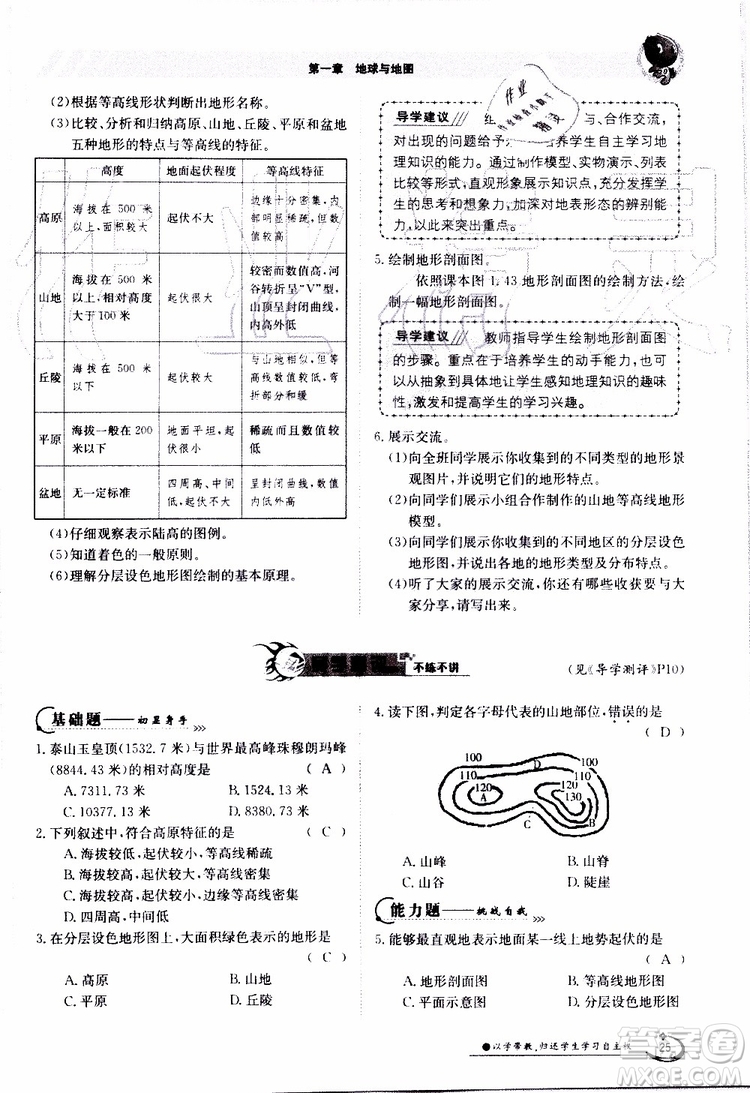 第一章 地球与地图
(2)根据等高线形状判断出地形名称。
(3)比较、分析和归纳高原、山地、丘陵、平原和盆地
五种地形的特点与等高线的特征。
高度 地面起伏程度 等高线特征
高原 海拔在 500 米以上,面积较大 起伏不大 边缘十分密集,内部明显稀疏,数值高
山地 海拔在 500 米以上,相对高度大于 100 米 起伏很大 较密而数值高,河谷转折呈“V”型,山顶呈封闭曲线,内高外低
丘陵 海拔在 500 米以下 起伏较大 与山地相似,但等高线数值较小,弯折部分和缓
平原 海拔一般在 200 米以下 地面平坦,起伏很小 稀疏而且数值较低
盆地 无一定标准 四周高、中间低 呈封闭曲线,数值外高内低
(4)仔细观察表示陆高的图例。
(5)知道着色的一般原则。
(6)理解分层设色地形图绘制的基本原理。
导学建议
与合作交流,
对出现的问题给予
培养学生自主学习地
理知识的能力。通过制作模型、实物演示、列表
比较等形式,直观形象展示知识点,充分发挥学
生的思考和想象力,加深对地表形态的辨别能
力,以此来突出重点。
5. 绘制地形剖面图。
依照课本图 1.43 地形剖面图的绘制方法,绘
制一幅地形剖面图。
导学建议 教师指导学生绘制地形剖面图
的步骤。重点在于培养学生的动手能力,也可
以从抽象到具体地让学生感知地理知识的趣味
性,激发和提高学生的学习兴趣。
6. 展示交流。
(1)向全班同学展示你收集到的不同类型的地形景
观图片,并说明这些地形的地形特点。
(2)向同学们展示小组合作制作的山地等高线地形
模型。
(3)向同学们展示你收集到的不同地区的分层设色
地形图,并说出各地的地形类型及分布特点。
(4)听了大家的展示交流,你还有哪些收获要与大
家分享,请大胆说一说。
不练不讲
(见《导学测评》P10)
基础题——初显身手
1. 泰山玉皇顶(1532.7 米)与世界最高峰珠穆朗玛峰
(8844.43 米)的相对高度是 ( A )
A. 7311.73 米 B. 1524.13 米
C. 10377.13 米 D. 8380.73 米
2. 下列叙述中,符合高原特征的是 ( C )
A. 海拔较低,起伏较小,等高线稀疏
B. 海拔较高,起伏较大,等高线密集
C. 海拔较高,起伏较小,边缘等高线密集
D. 四周高,中间低
3. 在分层设色地形图中,大面积绿色表示的地形是
( C )
A. 高原 B. 山地
C. 平原 D. 丘陵
4. 读下图,判定各字母代表的山地部位,错误的是
( D )
100 D 100
110 110
120 120
A 130
C B
A. 山峰 B. 山脊
C. 山谷 D. 陡崖
能力题——挑战自我
5. 能够最直观地表示地面某一线上地势起伏的是
( A )
A. 地形剖面图 B. 等高线地形图
C. 平面示意图 D. 分层设色地形图
●以学带教,归还学生学习自主权
25
答案圈
MXQE.COM